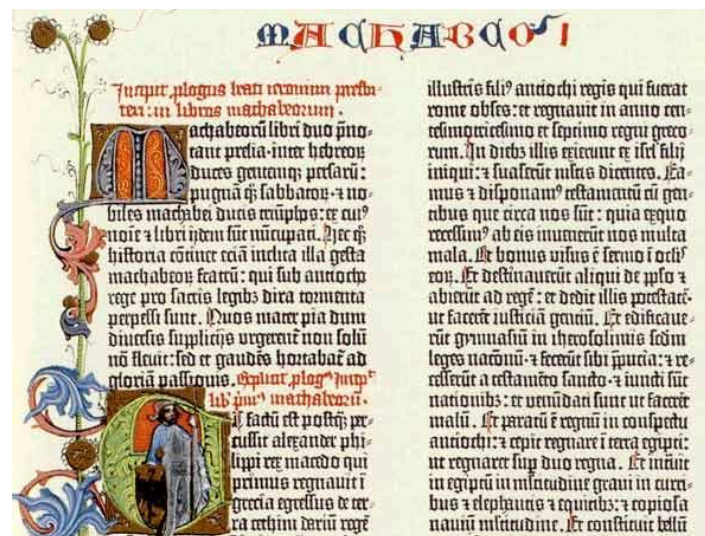 MACHABEOꝜ I
Incipit ꝓlogus beati ieronimi presbi-
teri: in libros machabeorum.
Machabeorū libri duo p̄no-
tant prelia·inter hebreoꝝ
duces gentemqꝫ persarū:
pugnā qꝫ sabbatoꝝ·⁊ no-
biles machabei ducis triūphos: ex cuiꝰ
noīe ⁊ libri ijdem sūt nūcupati. Hec qꝫ
historia cōtinet eciā inclita illa gesta
machabeoꝝ fratrū: qui sub antiocho
rege pro sacris legibꝫ dira tormenta
perpessi sunt. Quos mater pia dum
diuersis supplicijs vrgerent non solū
nō fleuit: sed et gaudēs hortabat ad
gloriā passionis. Explicit ꝓlogꝰ Incipᵗ
lib primꝰ machabeorū.
Et factū est postqꝫ per-
cussit alexander phi-
lippi rex macedo qui
primus regnauit ī
grecia egressus de ter-
ra cethim dariū regē
illustris filiꝰ antiochi regis qui fuerat
rome obses: et regnauit in anno cen-
tesimotricesimo et septimo regni greco-
rum. In diebꝫ illis exierunt ex isrl filij
iniqui: ⁊ suaserūt multis dicentes. Ea-
mus ⁊ disponamꝰ testamentū cū gen-
tibus que circa nos sūt: quia exquo
recessimꝰ ab eis inuenerūt nos multa
mala. Et bonus visus ē sermo ī oclꝰ
eoꝝ. Et destinauerūt aliqui de pplo ⁊
abierūt ad regē: et dedit illis potestatē·
ut facerēt iusticiā gentiū. Et edificaue-
rūt gymnasiū in iherosolimis scdm
leges nacionū·⁊ fecerūt sibi p̄pucia: ⁊ re-
cesserūt a testamēto sancto·⁊ iuncti sūt
nationibꝫ: et venūdati sunt ut facerēt
malū. Et paratū ē regnū in conspectu
antiochi: ⁊ cepit regnare ī terra egipti:
ut regnaret sup duo regna. Et intrauit
in egiptū in multitudine graui in curri-
bus ⁊ elephantis ⁊ equitibꝫ: ⁊ copiosa
nauiū multitudine. Et constituit bellū